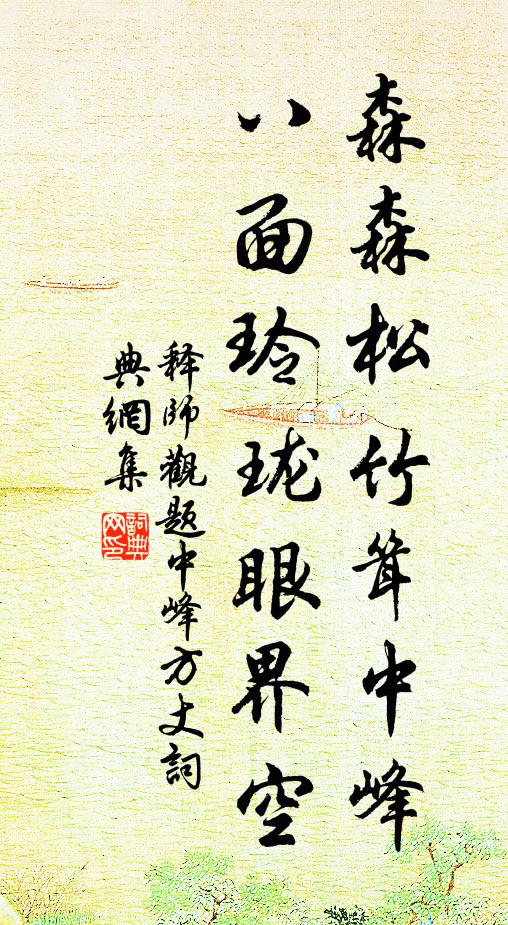 森森松竹耸中峰
八面玲珑眼界空
释师觀题中峰方丈詞
典網集
詞典网印